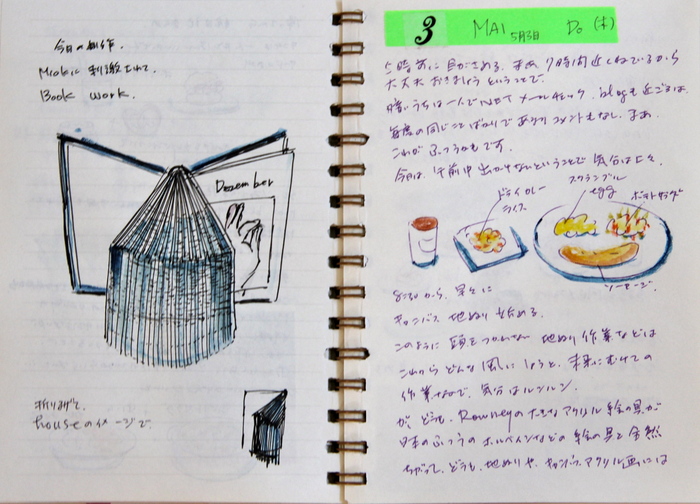 今日の制作.
Miokに刺激されて.
Book work.
Dezember
折り曲げて.
houseのイメージで.
3 MAI 5月3日 Do (木)
5時前に目がさめる. まあ 7時間近くねているから
大丈夫 おきましょう ということで.
暁いうちは一人でNETメールチェック. blogも近ごろは.
毎度の同じことばかりであり コメントもなし. まあ.
これがふつうかもです.
今日は. 午前中出かけないということで 気分は上々.
ドライカレーライス
スクランブル egg
ポテトサラダ
ソーセージ.
8:30から. 早々に
キャンバス 地ぬり 始める.
このように 頭をつかわない 地ぬり作業などは
これから どんな風にしようと. 未来にむけての
作業なので. 気分はルンルン.
が, どうも. Rowneyの大きなアクリル絵の具が
日本のふつうの ホルベインなどの 絵の具と 全然
ちがって. どうも. 地ぬりや. キャンバス. アクリル画には